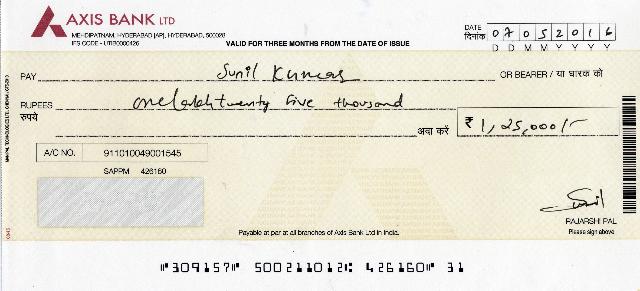 AXIS BANK LTD
MEHDIPATNAM, HYDERABAD [AP], HYDERABAD, 500028
IFS CODE - UTIB0000426
VALID FOR THREE MONTHS FROM THE DATE OF ISSUE
DATE
दिनांक 07052016
D D M M Y Y Y Y
PAY Sunil Kumar OR BEARER / या धारक को
RUPEES one lakh twenty five thousand
रुपये अदा करें ₹ 1,25,000/-
A/C NO. 911010049001545
SAPPM 426160
Sunil
RAJARSHI PAL
Please sign above
Payable at par at all branches of Axis Bank Ltd in India.
⑈309157⑈ 500211012⑆ 426160⑈ 31